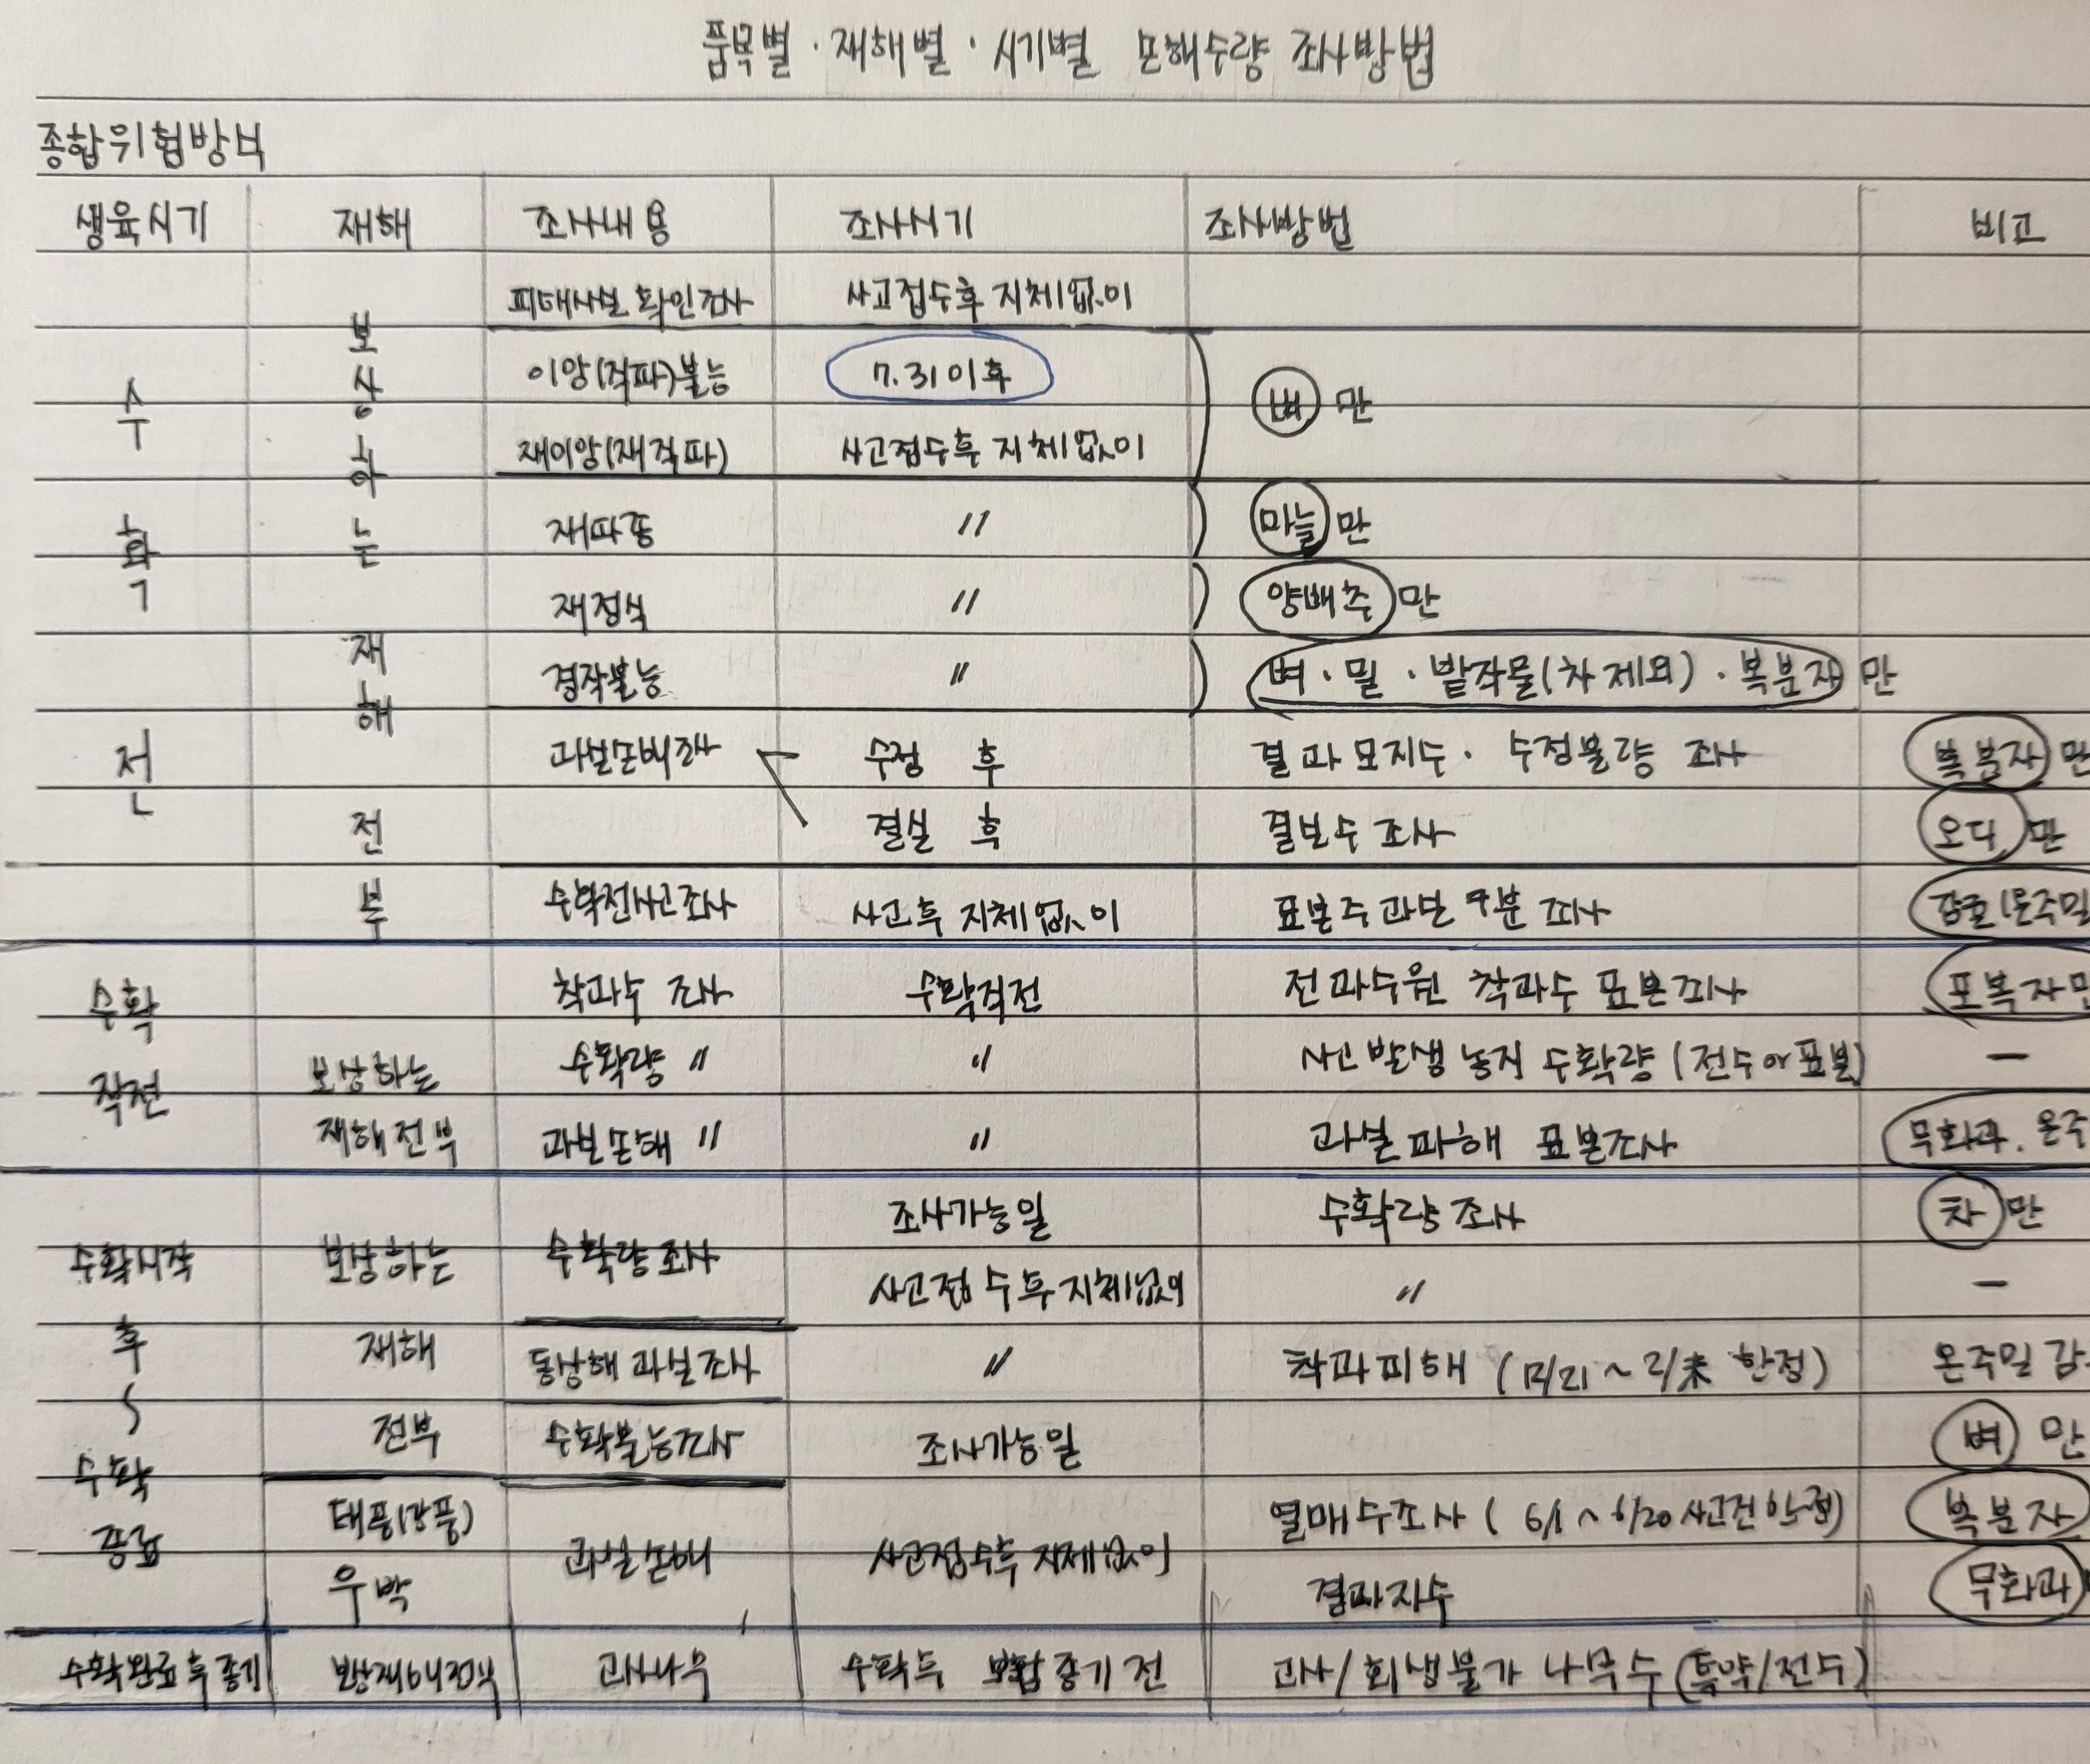 품목별 · 재해별 · 시기별 손해수량 조사방법
종합위험방식
생육시기 재해 조사내용 조사시기 조사방법 비고
수확전 보상하는 재해 전부
피해사실 확인조사 사고접수후 지체없이
이앙(직파)불능 7.31이후 벼 만
재이앙(재직파) 사고접수후 지체없이
재파종 〃 마늘 만
재정식 〃 양배추 만
경작불능 〃 벼 · 밀 · 밭작물(차 제외) · 복분자 만
과실손해조사 수정 후 결과모지수 · 수정불량 조사 복분자 만
결실 후 결실수 조사 오디 만
수확전사고조사 사고후 지체없이 표본주과실 구분 조사 감귤(온주밀
수확직전 보상하는 재해전부
착과수 조사 수확직전 전과수원 착과수 표본조사 포복자만
수확량 〃 〃 사고발생 농지 수확량 (전수 or 표본) ー
과실손해 〃 〃 과실피해 표본조사 무화과. 온주
수확시작 후 ~ 수확종료 보상하는 재해 전부
수확량 조사 조사가능일 수확량 조사 차 만
사고접수후 지체없이 〃 ー
동상해 과실조사 〃 착과피해 (12/21 ~ 2/末 한정) 온주밀감
수확불능조사 조사가능일 벼 만
태풍(강풍) 우박 과실손해 사고접수후 지체없이
열매수조사 ( 6/1 ~ 6/20 사고건 한정) 복분자
결과지수 무화과
수확완료후종기 보상재해전부 고사나무 수확후 보험종기 전 고사/회생불가 나무수 (특약/전수)